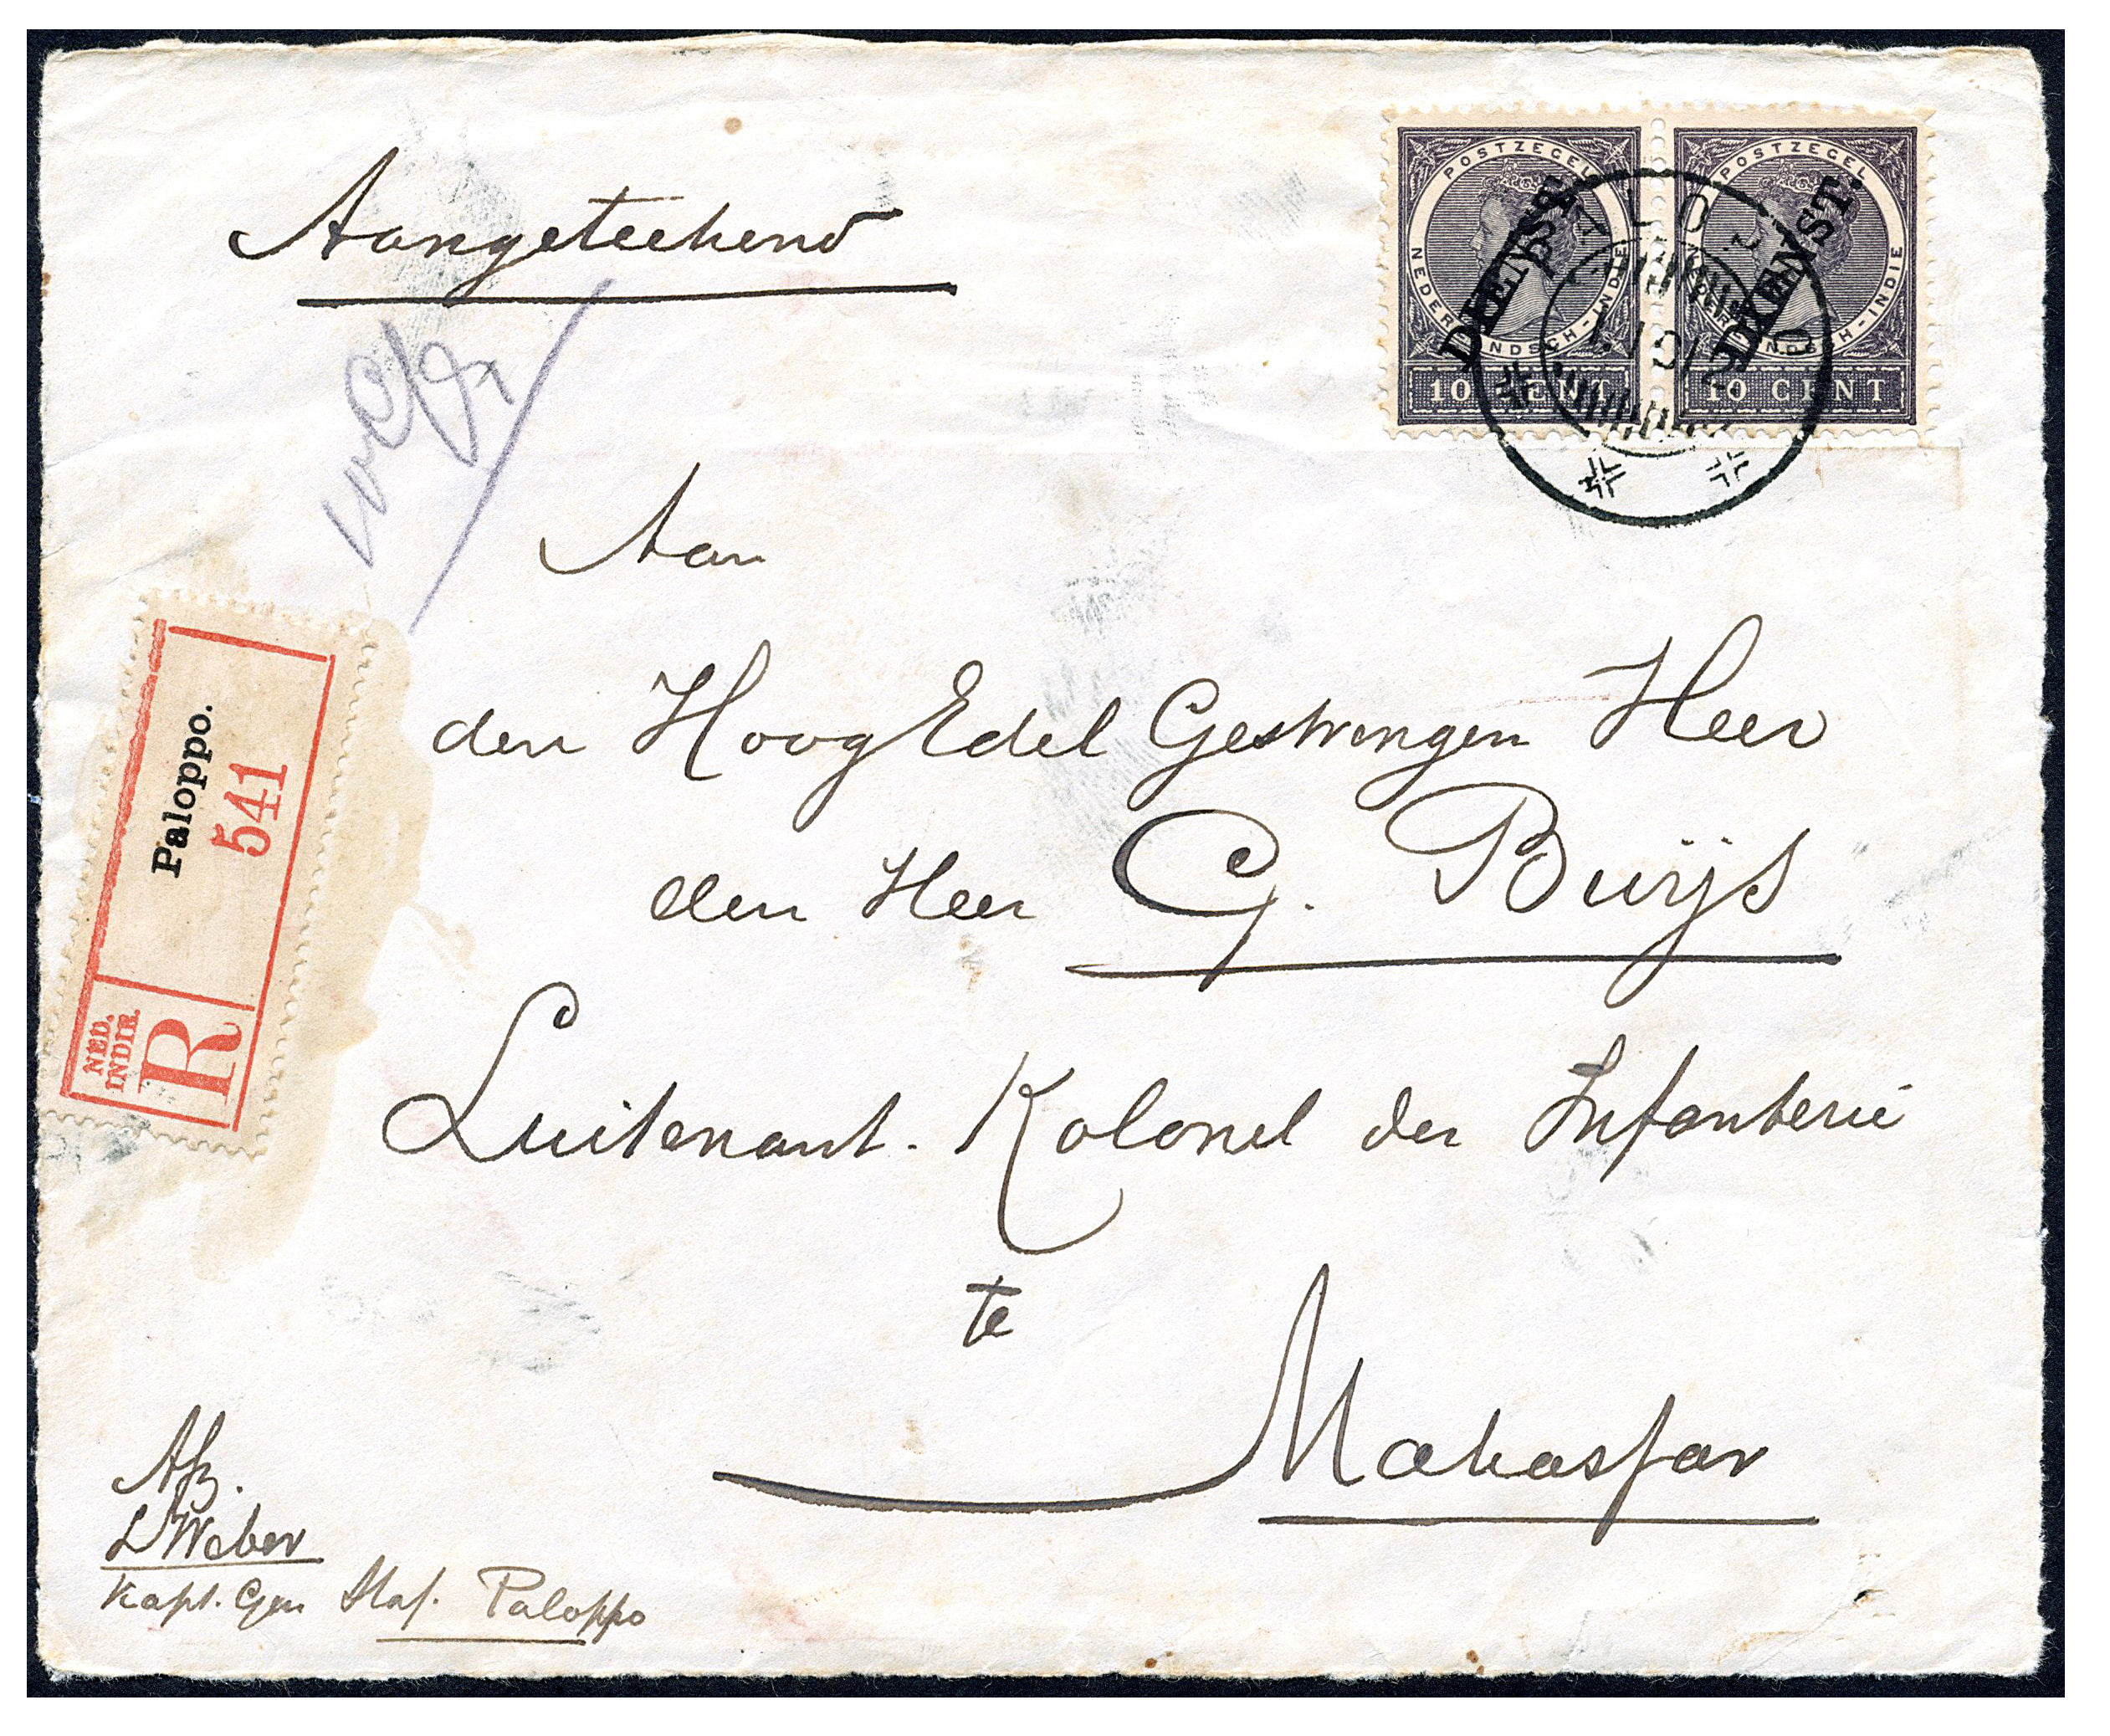 Aangeteekend
POSTZEGEL
NEDERLANDSCH-INDIE
10 CENT
DIENST.
POSTZEGEL
NEDERLANDSCH-INDIE
10 CENT
DIENST.
Aan
den HoogEdel Gestrengen Heer
den Heer G. Buijs
Luitenant. Kolonel der Infanterie
te
Makassar
Paloppo.
541
NED.
INDIE.
R
Afz.
Weber
Kapt. Gen Staf. Paloppo